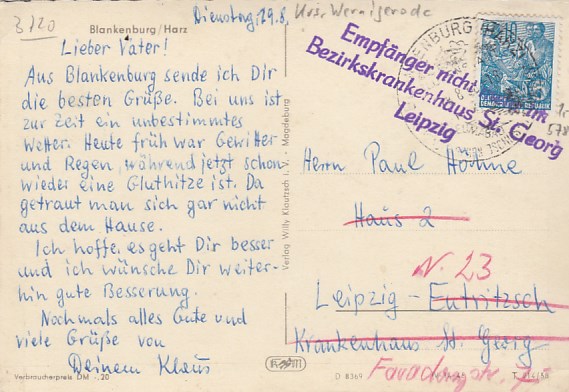 3120
Blankenburg/Harz
Dienstag, 19.8.
Krs. Wernigerode
Lieber Vater!
Aus Blankenburg sende ich Dir
die besten Grüße. Bei uns ist
zur Zeit ein unbestimmtes
Wetter. Heute früh war Gewitter
und Regen, während jetzt schon
wieder eine Gluthitze ist. Da
getraut man sich gar nicht
aus dem Hause.
Ich hoffe, es geht Dir besser
und ich wünsche Dir weiter-
hin gute Besserung.
Nochmals alles Gute und
viele Grüße von
Deinem Klaus
Verbraucherpreis DM -.20
Verlag Willy Klautzsch I. V. - Magdeburg
Empfänger nicht
Bezirkskrankenhaus St. Georg
Leipzig
10
DEUTSCHE
DEMOKRATISCHE REPUBLIK
Herrn Paul Höhne
Haus 2
N. 23
Leipzig - Eutritzsch
Krankenhaus St. Georg
D 8369